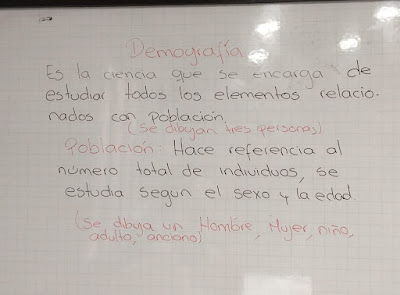 Demografía
Es la ciencia que se encarga de
estudiar todos los elementos relacio-
nados con población.
(Se dibujan tres personas)
Población: Hace referencia al
número total de individuos, se
estudia según el sexo y la edad.
(Se dibuja un Hombre, Mujer, niño,
adulto, anciano)